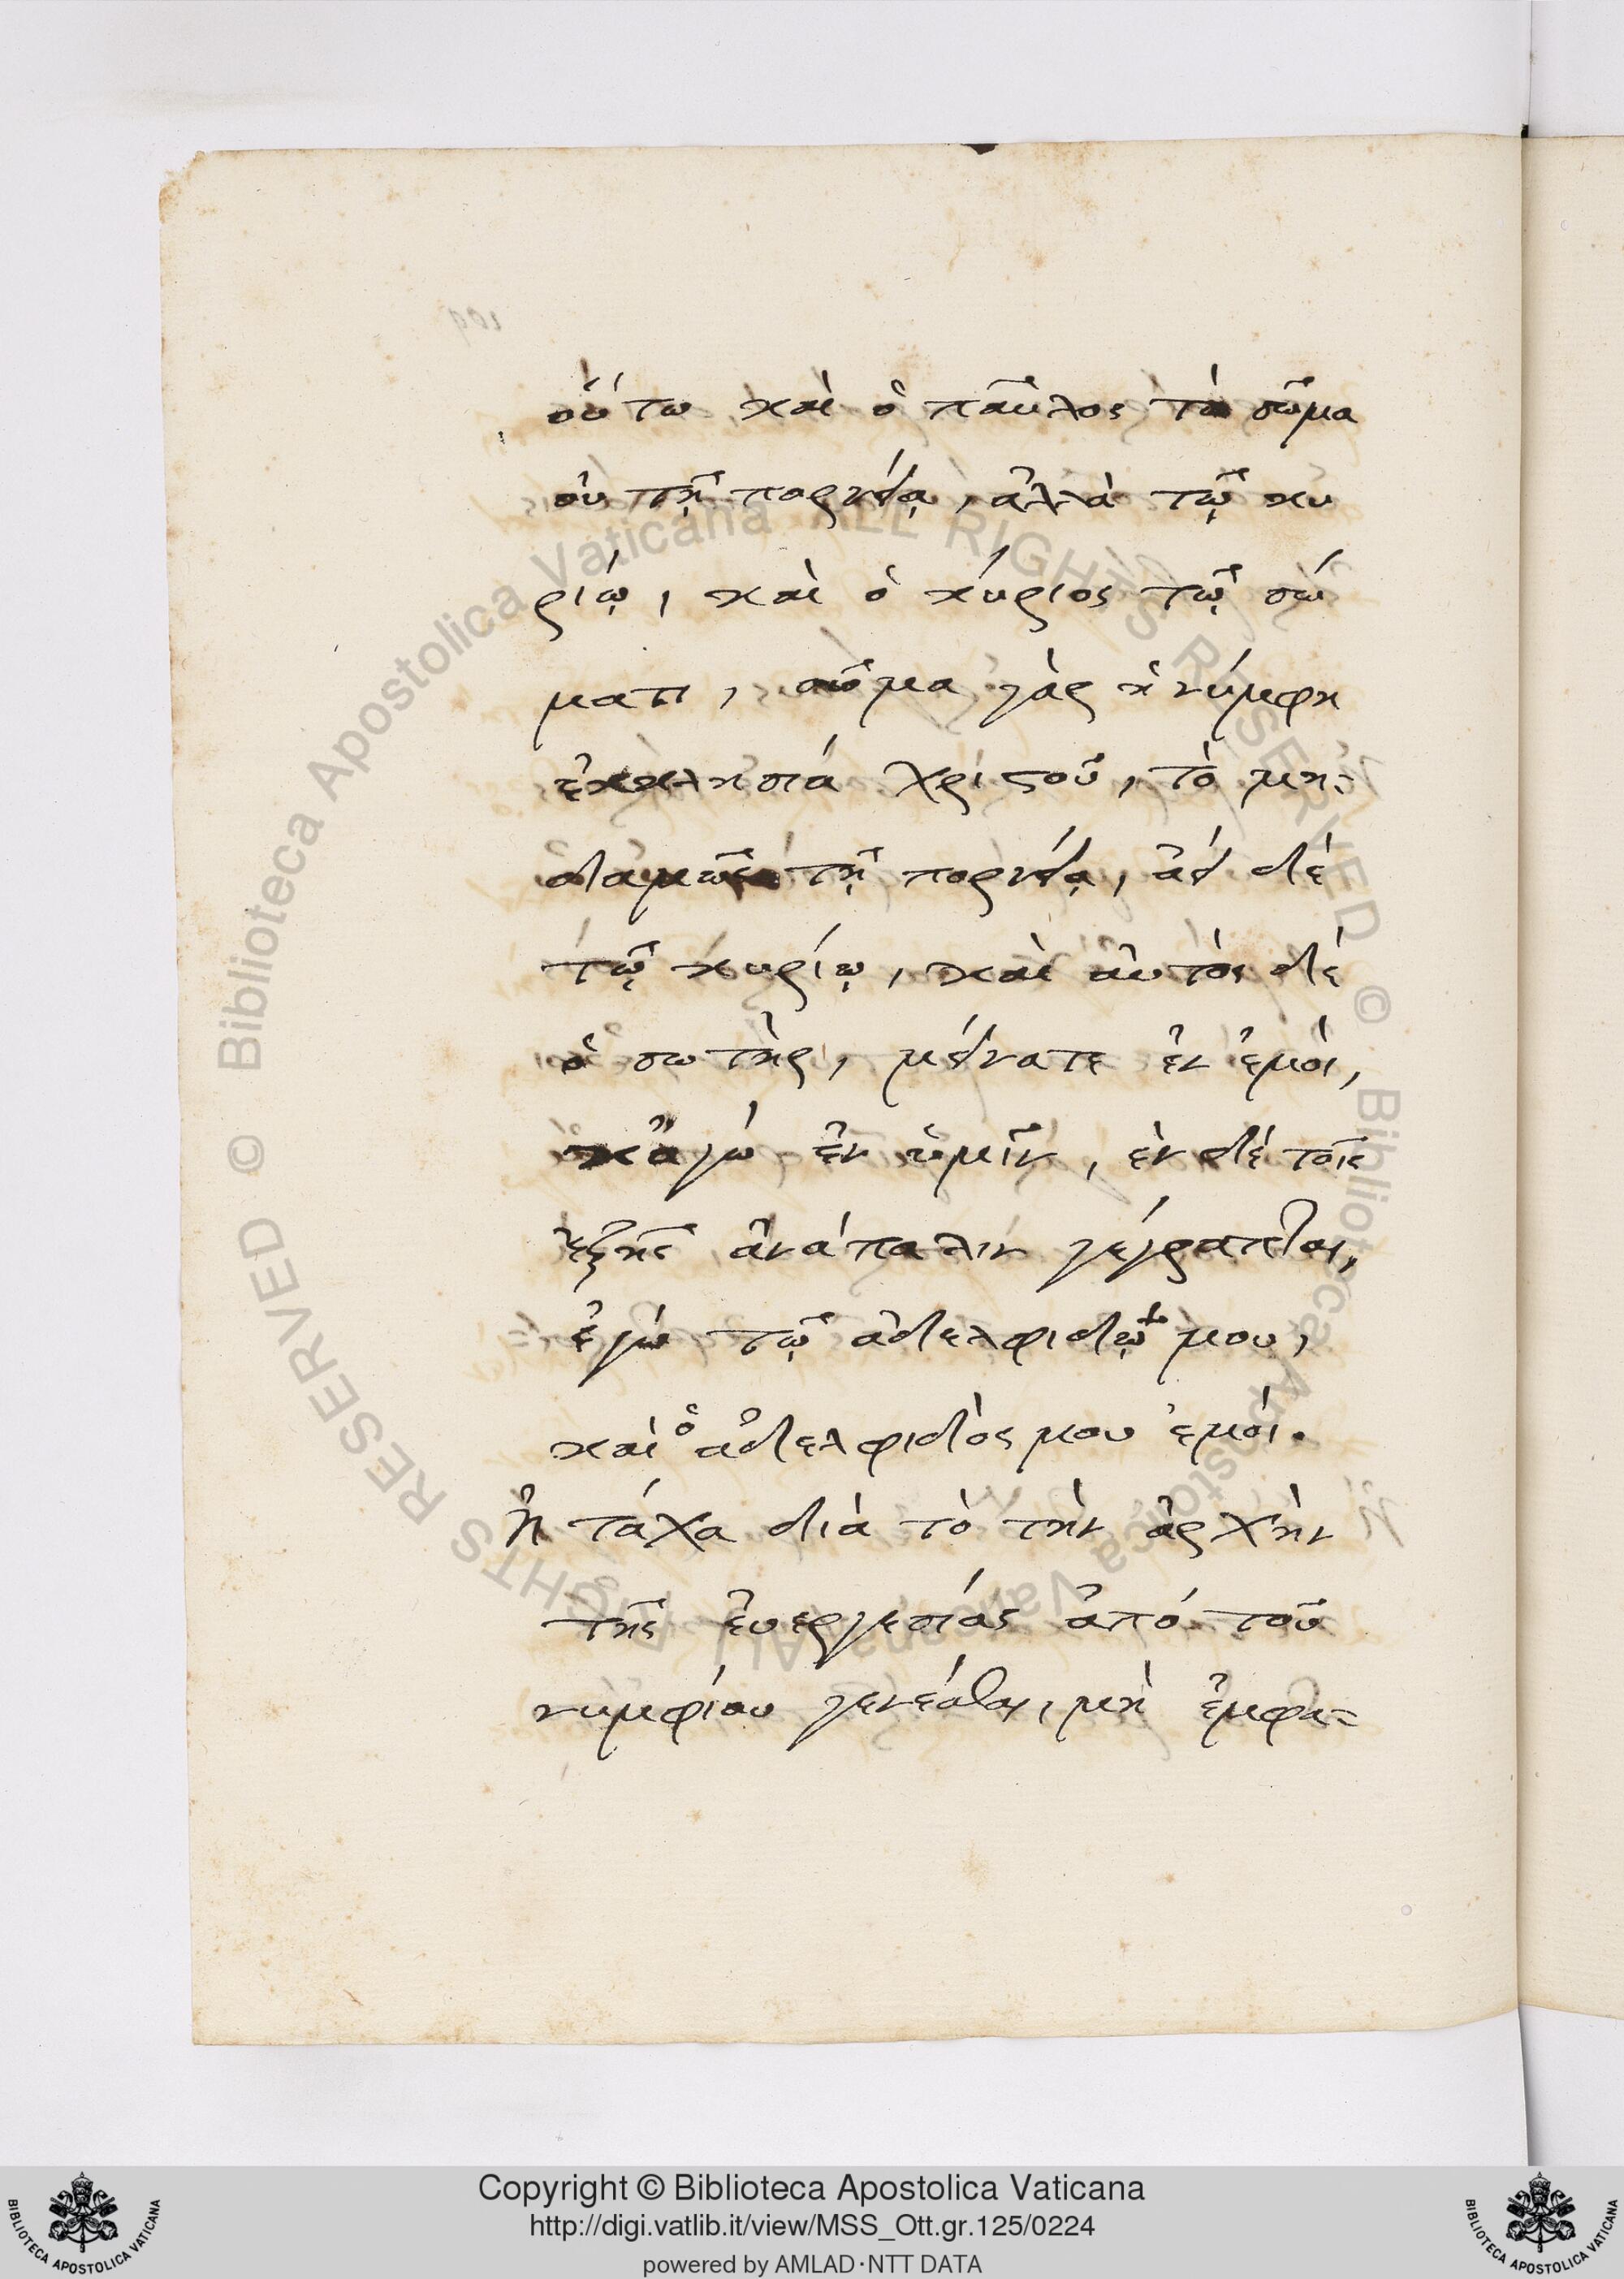 οὕτω καὶ ὁ παῦλος τὸ σῶμα
οὐ τῇ πορνείᾳ, ἀλλὰ τῷ κυ
ρίῳ, καὶ ὁ κύριος τῷ σώ
ματι, σῶμα γὰρ ἡ νύμφη
ἐκκλησιά χριστοῦ, τὸ μη=
δαμῶς τῇ πορνείᾳ, ἀεί δὲ
τῷ κυρίῳ, καὶ αὐτὸς δὲ
ὁ σωτὴρ, μείνατε ἐν ἐμοὶ,
κἀγὼ ἐν ὑμῖν, ἐν δὲ τοῖς
ἑξῆς ἀνάπαλιν γέγραπται,
ἐγὼ τῷ ἀδελφιδῷ μου,
καὶ ὁ ἀδελφιδὸς μου ἐμοὶ.
Ἢ τάχα διὰ τὸ τὴν ἀρχὴν
τῆς ἐυεργεσίας ἀπό τοῦ
νυμφίου γενέσθαι, μὴ ἐμφα=
Copyright © Biblioteca Apostolica Vaticana
http://digi.vatlib.it/view/MSS_Ott.gr.125/0224
powered by AMLAD·NTT DATA
BIBLIOTECA APOSTOLICA VATICANA
BIBLIOTECA APOSTOLICA VATICANA
© Biblioteca Apostolica Vaticana ALL RIGHTS RESERVED © Biblioteca Apostolica Vaticana ALL RIGHTS RESERVED